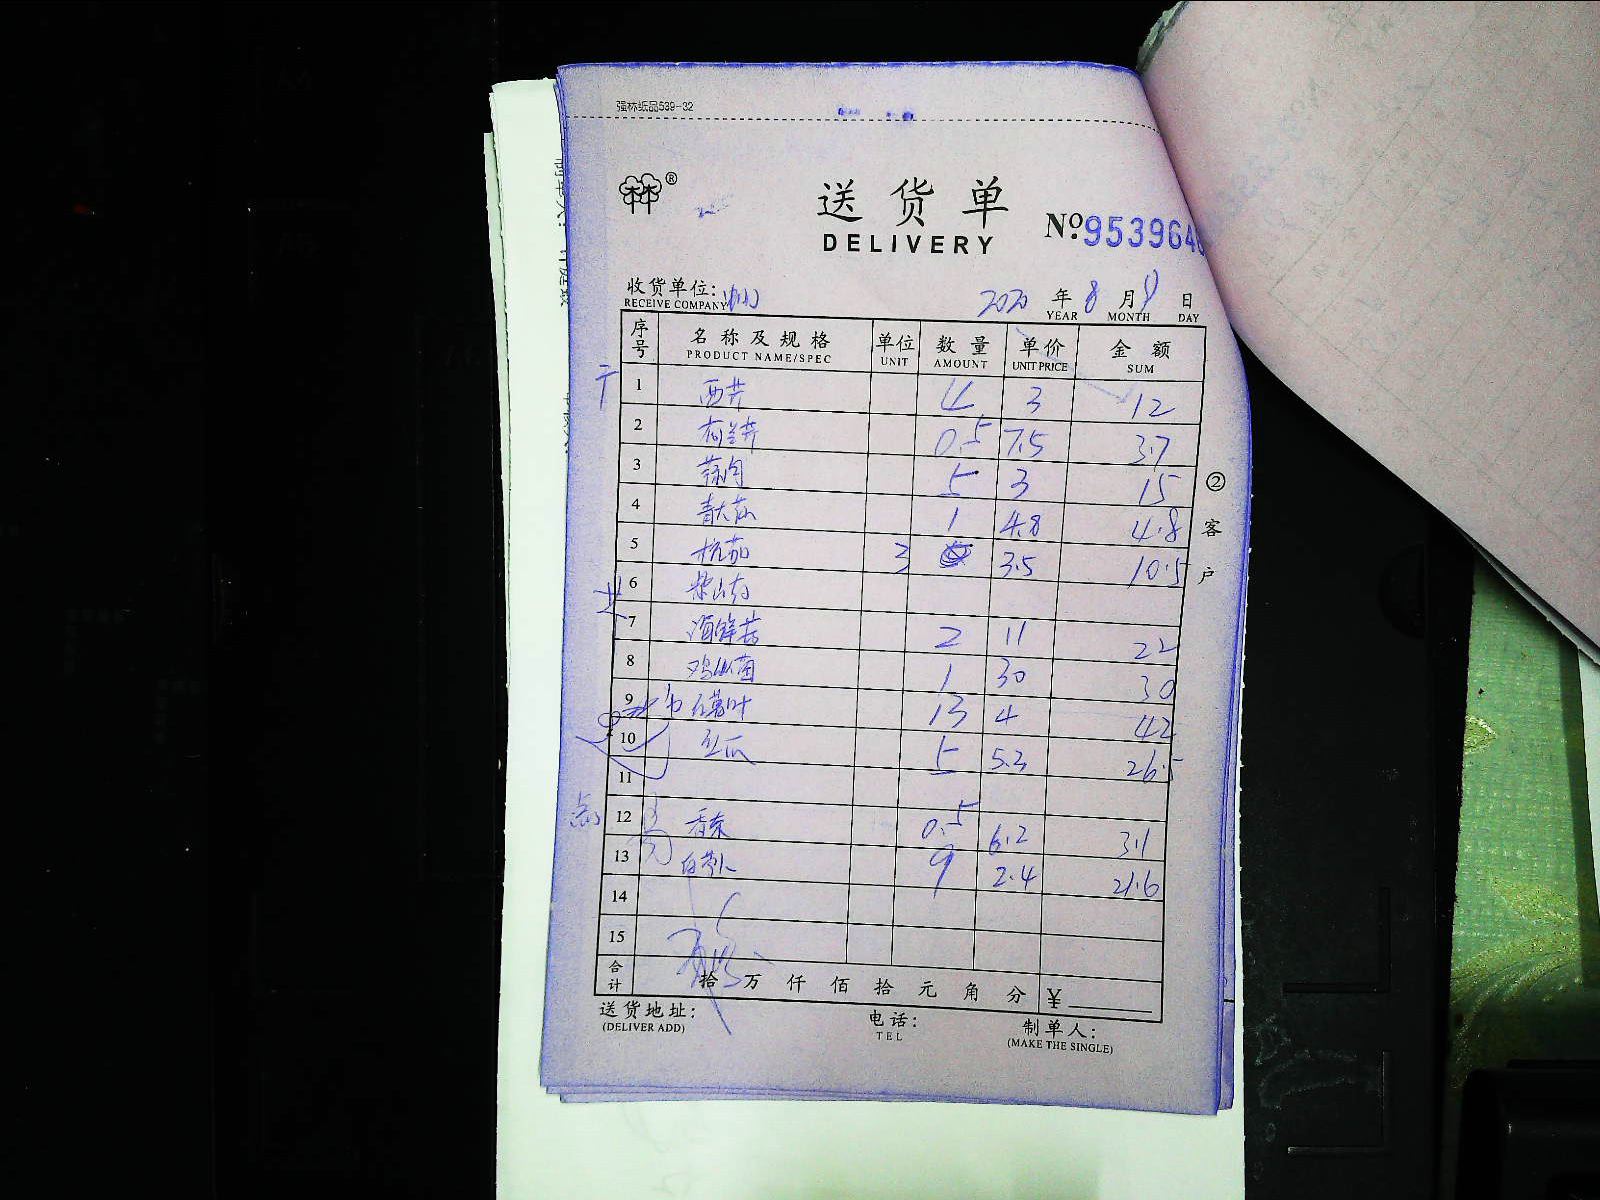 强林纸品539-32
®
送货单
DELIVERY
№.953964
收货单位:
RECEIVE COMPANY
2020 年 8 月 9 日
YEAR MONTH DAY
序号 名称及规格 单位 数量 单价 金额
PRODUCT NAME/SPEC UNIT AMOUNT UNIT PRICE SUM
1 西芹 4 3 12
2 荷兰芹 0.5 7.5 3.7
3 蒜肉 5 3 15
4 1 4.8 4.8
5 杭茄 3 3.5 10.5
6 紫山药
7 海鲜菇 2 11 22
8 鸡枞菌 1 30 30
9 红薯叶 13 4 42
10 丝瓜 5 5.3 26.5
11
12 香菜 0.5 6.2 3.1
13 9 2.4 21.6
14
15
合计 拾 万 仟 佰 拾 元 角 分 ¥
② 客户
送货地址:
(DELIVER ADD)
电话:
TEL
制单人:
(MAKE THE SINGLE)